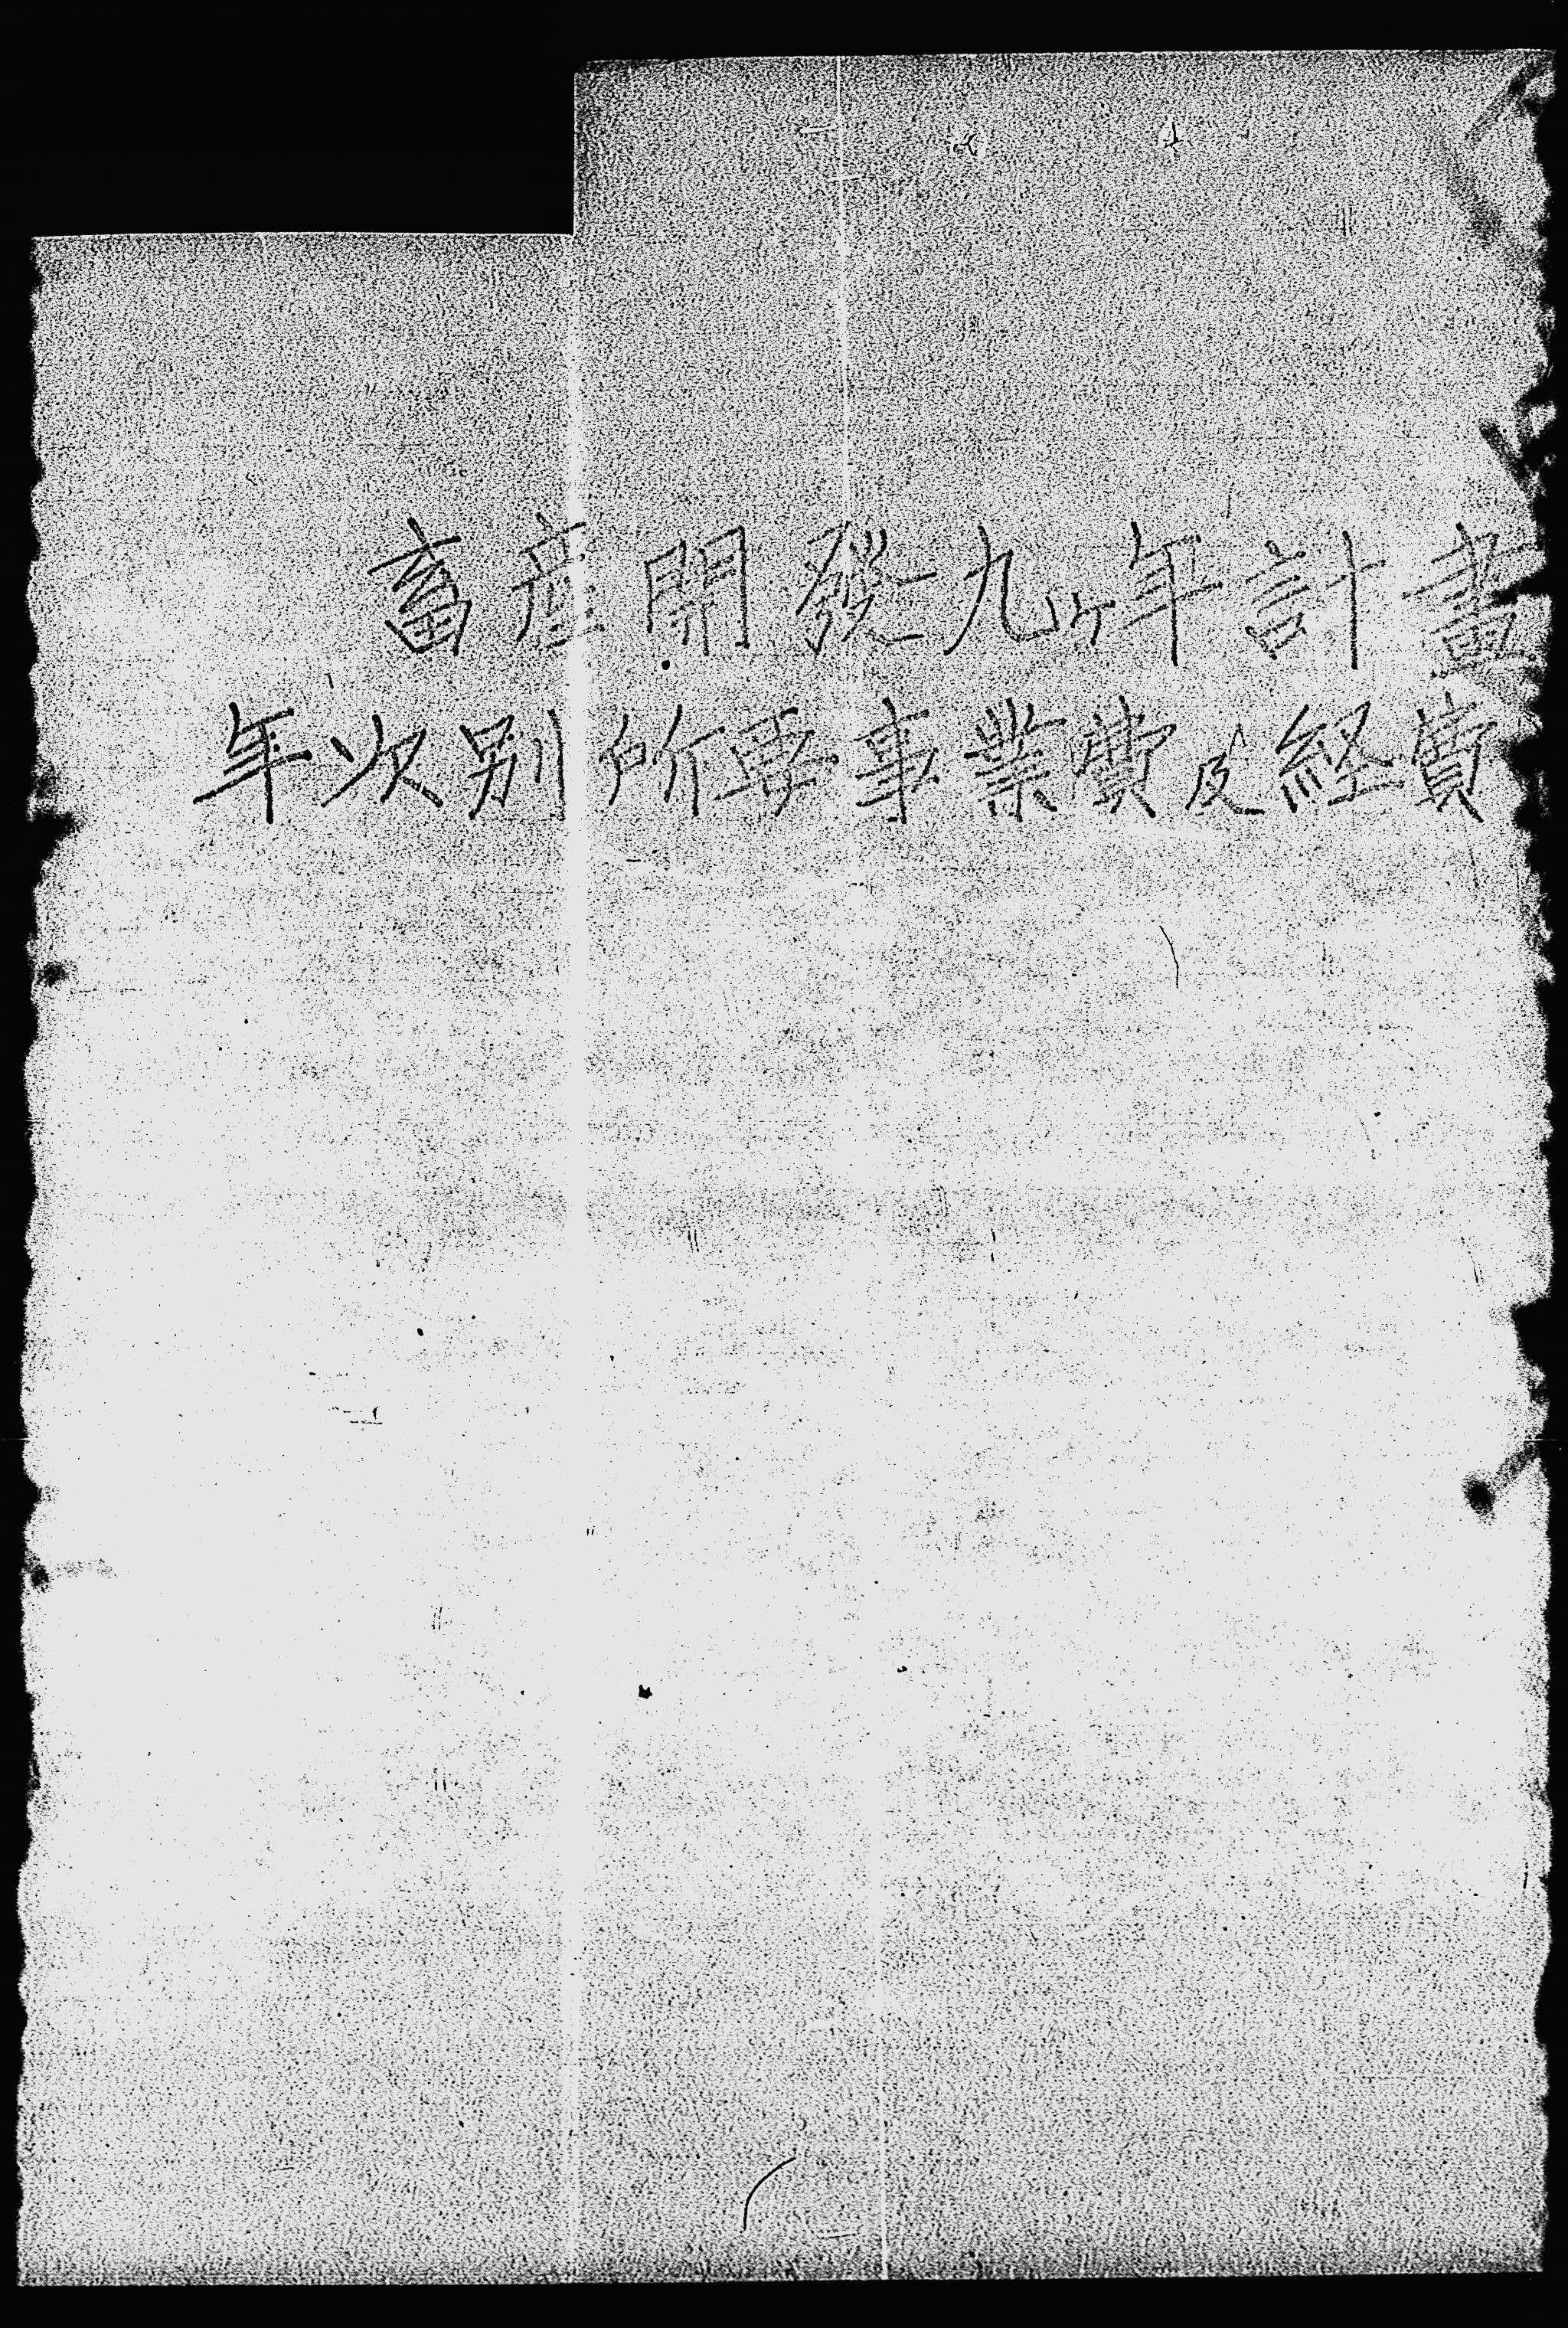 畜産開發九ヶ年計畫
年次別所要事業費及経費